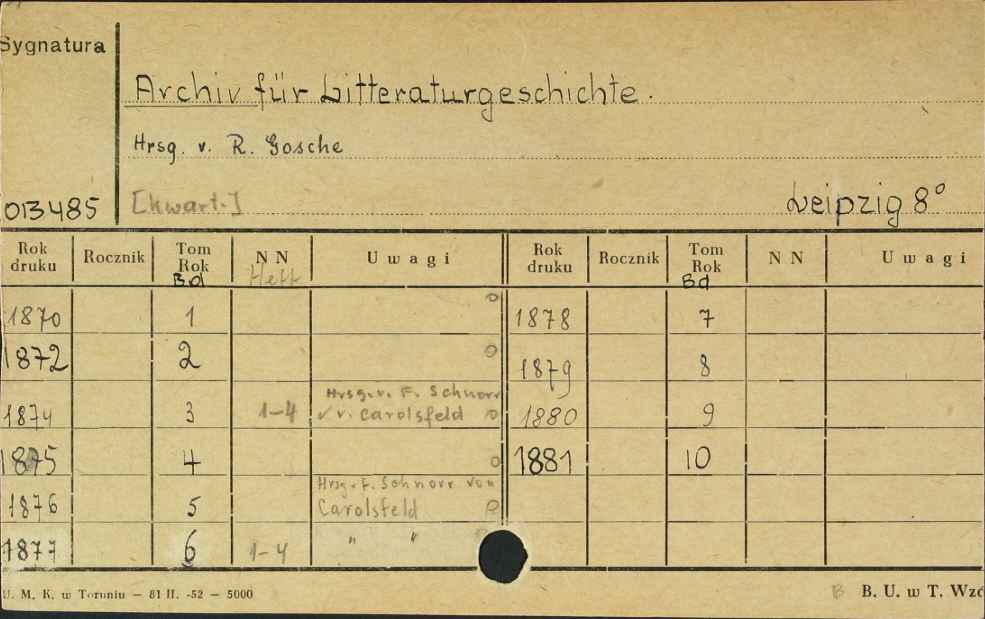 Sygnatura
Archiv für Litteraturgeschichte.
Hrsg. v. R. Gosche
013485 [kwart.] Leipzig 8°
Rok druku Rocznik Tom Rok Bd NN Heft Uwagi Rok druku Rocznik Tom Rok Bd NN Uwagi
1870 1 o 1878 7
1872 2 o 1879 8
1874 3 1-4 Hrsg. v. F. Schnorr v. Carolsfeld o 1880 9
1875 4 o 1881 10
1876 5 Hrsg. F. Schnorr von Carolsfeld
1877 6 1-4 " "
U. M. K. w Toruniu — 81 II. -52 — 5000 B B. U. w T.